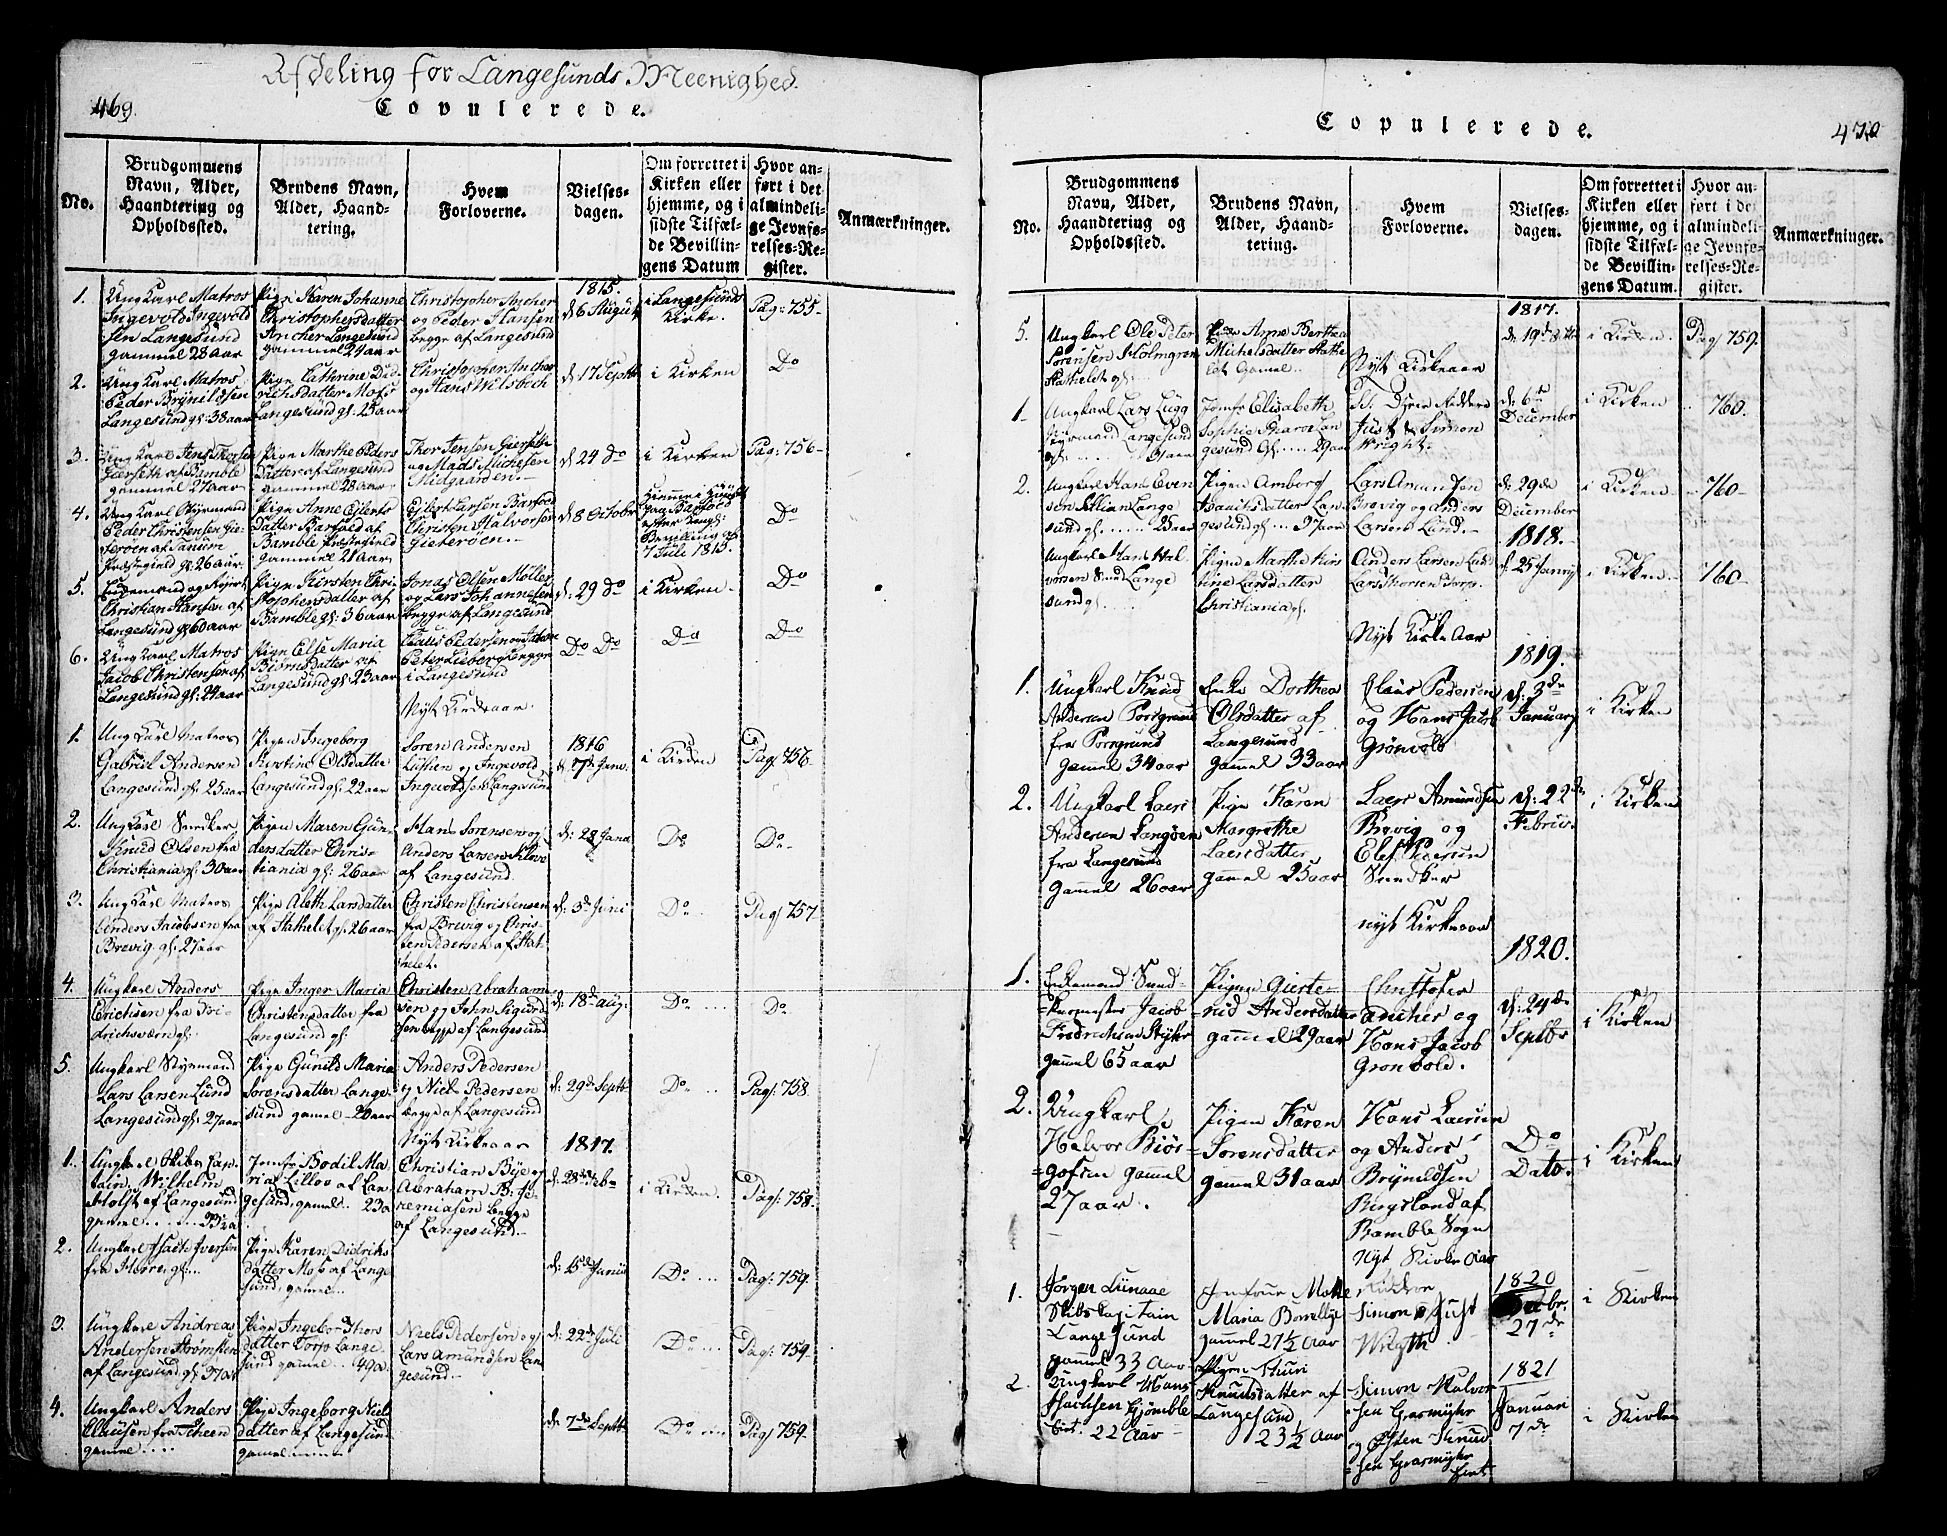 Afdeling for Langesunds Meenighed.
469.
Copulerede.
No.
Brudgommens
Navn, Alder,
Haandtering og
Opholdssted.
Brudens Navn,
Alder, Haand-
tering.
Hvem
Forloverne.
Vielses-
dagen.
Om forrettet i
Kirken eller
hjemme, og i
sidste Tilfæl-
de Bevillin-
gens Datum
Hvor an-
ført i det
almindeli-
ge Jevnfø-
relses-Re-
gister.
Anmærkninger.
1.
Ung Karl Matros
Ingevold Ingevold
sen Langesund
gammel 28 aar
Pige Karen Johanne
Christophersdatter
Ancher Langesund
gammel 24 aar
Christopher Ancher
og Peder Hansen
begge af Langesund
1815.
d 6 August
i Langesunds
Kirke.
Pag: 755-
2.
Ung Karl Matros
Peder Brynilsen
Langesund gl: 38 aar
Pige Cathrine Did-
richsdatter Moss
Langesund gl: 25 aar
Christopher Ancher
og Hans Wilsbech
d: 17 Septbr
i Kirken
Do
3.
Ung Karl Jens Thorsen
Gierseth af Bamble
gammel 27 aar
Pige Marthe Peders
Datter af Langesund
gammel 28 aar
Thor Jensen Gierseth
og Mads Michelsen
Midgaarden.
d: 24 do
i Kirken
Pag: 756-
4.
Ung Karl Styrmand
Peder Christensen Gie-
terøen af Tanum
Præstegield gl: 26 aar.
Pige Anne Eilerts
Datter Barfoed af
Bamble Præstegield
gammel 21 aar
Eilert Larsen Barfoed
Christen Halvorsen
Gieterøen.
d: 8 October
Hiemme i Huuset
paa Barfoed
efter Kongl:
Bevilling af
7 Juli 1815.
Do
5.
Enkemand og Reperb:
Christian Hansen af
Langesund gl: 60 aar
Pige Kirsten Chri-
stophersdatter af
Bamble gl: 36 aar
Jonas Olsen Möller
og Lars Johannesen
begge af Langesund
d: 29 do
i Kirken.
Do
6.
Ung Karl Matros
Jacob Christensen af
Langesund gl: 24 aar
Pige Else Maria
Biörnsdatter af
Langesund gl: 23 aar
Claus Pedersen og
Peter Lieborg begge
i Langesund
Do Do
Do
Do
Nyt Kirkeaar.
1.
Ung Karl Matros
Gabriel Andersen
Langesund gl: 25 aar
Pigen Ingeborg
Kirstine Olsdatter
Langesund gl: 22 aar
Soren Andersen
og Ingevold
Ingevoldsen Langesund
1816
d: 7de Janv.
i Kirken
Pag 756-
2.
Ung Karl Snedker
Knud Olsen fra
Christiania gl: 30 aar
Pigen Maren Gun-
dersdatter Chris-
tiania gl: 26 aar
Hans Sorensen og
Anders Larsen
af Langesund.
d: 28 Janu
Do
Do
3.
Ung Karl Matros
Anders Jacobsen fra
Brevig gl: 27 aar
Pige Aleth Larsdatter
af Stathelet gl: 26 aar
Christen Christensen
fra Brevig og Chris-
ten Pedersen af Stat-
helet.
d: 3de Juni
Do
Pag 757.
4.
Ungkarl Anders
Erichsen fra Fri-
drichsværn gl:
Pige Inger Maria
Christensdatter fra
Langesund gl:
Christen Abraham
sen og John Sigurd
sen begge af Langesund
d: 18de aug.
Do
Do
5.
Ungkarl Styrmand
Lars Larsen Lund
Langesund gl: 27 aar
Pige Gunild Maria
Sorensdatter Lange-
sund gamel 20 aar
Anders Pedersen
og Niels Pedersen
begge af Langesund
d: 29de Septbr
Do
Pag: 758.
Nyt Kirkeaar
1817.
1.
Ungkarl Skibs Cap-
tain Wilhelm
Holst af Langesund
gamel
Jomfr Bodil Ma-
ria Lilloe af Lan-
gesund, gamel 23 a
Christian Bye og
Abraham B: Je-
remiasen begge
af Langesund.
d: 28de Feb
i Kirken.
Pag: 758.
2.
Ungkarl Isach Iversen
fra
Pige Karen Didriks
datter Moss af Lange
sund, gamel
d: 15de Junii
Do
Pag: 759.
3.
Ungkarl Andreas
Andersen Strømsten
af Langesund gl: 37 aar
Pige Ingebor Thors
datter Torp Lange-
sund gamel 49 a.
Niels Pedersen og
Lars Amundsen Lan
gesund
d: 22de Juli
Do
Pag: 759-
4.
Ungkarl Anders
Clausen fra Scheen
gamel
Pige Ingeborg Niels
datter af Langesund
gamel
d: 7de Septbr
Do
Pag 759.
Copulerede.
470
No.
Brudgommens
Navn, Alder,
Haandtering og
Opholdssted.
Brudens Navn,
Alder, Haand-
tering.
Hvem
Forloverne.
Vielses-
dagen.
Om forrettet i
Kirken eller
hjemme, og i
sidste Tilfæl-
de Bevillin-
gens Datum.
Hvor an-
ført i det
almindeli-
ge Jevnfø-
relses-Re-
gister.
Anmærkninger.
5.
Ungkarl Ole Peter
Sörensen Holmgren
Stathelet gl:
Pige Anne Berthea
Michelsdatter Stathe
let Gamel
1817.
d: 19de 8tbr
i Kirken.
Pag 759.
Nyt Kirkeaar
1.
Ungkarl Lars Lygg
Styrmand Langesund
gl: aar
Jomfr Elisabeth
Sophie Lan
gesund Gl: 29 aar
Just & Simon
Wright.
d: 6te
December
i Kirken
760.
2.
Ungkarl Hans Even
sen Lange
sund gl: 25 aar
Pigen Amborg
datter Lan
gesund gl: aar
Lars Amundsen
Brevig og Anders
Larsen Lund.
d: 29de
December
i Kirken
760-
1818.
Ungkarl Hans Hal
vorsen Sund Lange
sund gl:
Pigen Marthe Kirs
tine Larsdatter
Christiania gl.
Anders Larsen Lund
Lars Thorsen Torp.
d: 25 Janry
i Kirken
760-
Nyt Kirke Aar
1819.
1.
Ungkarl Knud
Andersen Porsgrund
fra Porsgrund
Gamel 34 aar
Enke Dorthea
Olsdatter af
Langesund
gammel 33 aar
Claus Pedersen
og Hans Jacob
Grönvold
d: 3de
January
i Kirken
2.
Ungkarl Laers
Andersen Langøen
fra Langesund
Gammel 26 aar
Pige Karen
Margrethe
Laersdatter
gammel 25 aar
Laers Amundsen
Brevig og
Elef Persen
Snedker
d: 22de
Febru.
i Kirken
nyt Kirkeaar
1820.
1.
Enkemand Sned-
=kermester Jacob
Fredrichsen Styhr
gammel 65 aar
Pigen Gierte-
=rud Andersdatter
gammel 29 aar
Christofer
ancher og
Hans Jacob
Gronvold.
d: 24de
Septbr
i Kirken
2.
Ungkarl
Halvor Biör
=gofsen gammel
27 aar.
Pigen Karen
=Sorensdatter
gamel 31 aar
Hans Laersen
og Anders
Brynildsen
Rugsland af
Bamble Sogn
Do
Dato.
i Kirken
Nyt Kirke Aar
1.
Jørgen Lunaae
Skibs kapitain
Langesund
gammel 33 Aar
Jomfrue
Maria
gammel 27 1/2 Aar
Simon & Just
Wrigth
1820
Decbr.
27de
i Kirken
2.
Ungkarl Hans
Isachsen Gjømble
Eiet. 22 Aar
Pigen Thuri
Knudsdatter af
Langesund
23 1/2 Aar
Simon Halvor
=sen Grasmyhr
og Østen Knud
=sen Grasmyhr
Eiet.
1821
Januari
7de
i Kirken